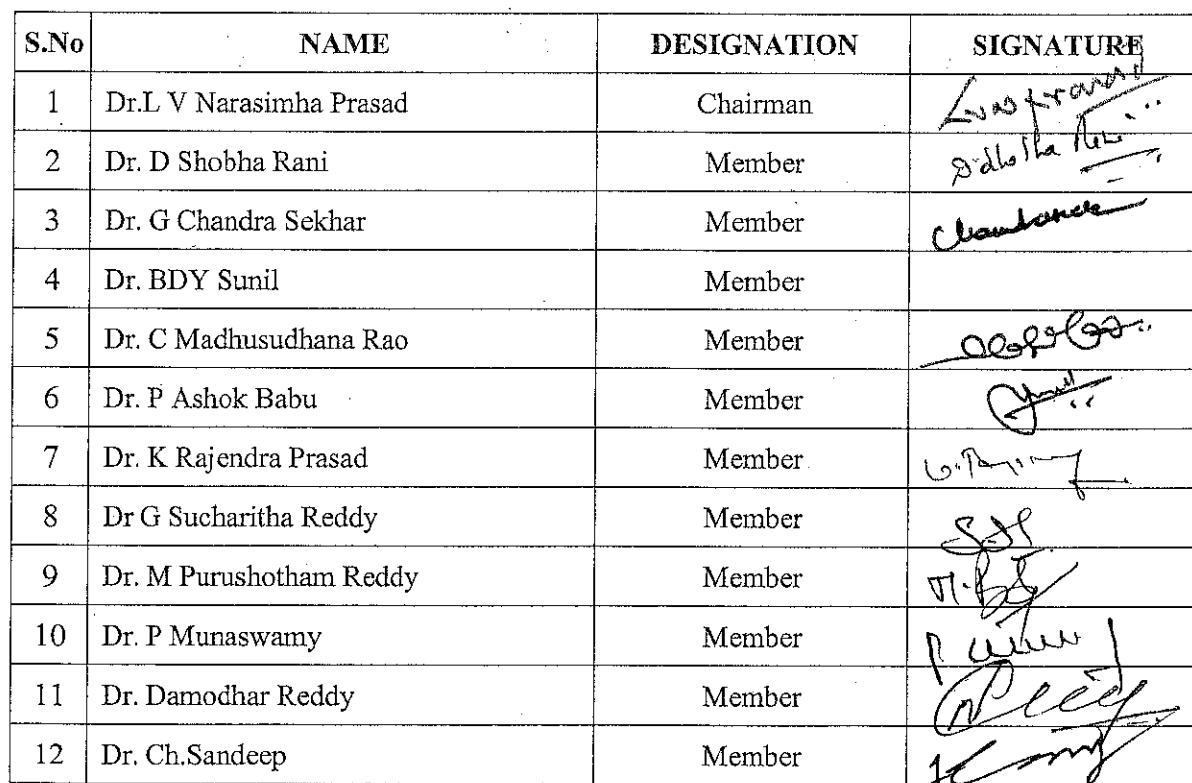 S.No NAME DESIGNATION SIGNATURE
1 Dr.L V Narasimha Prasad Chairman
2 Dr. D Shobha Rani Member
3 Dr. G Chandra Sekhar Member
4 Dr. BDY Sunil Member
5 Dr. C Madhusudhana Rao Member
6 Dr. P Ashok Babu Member
7 Dr. K Rajendra Prasad Member
8 Dr G Sucharitha Reddy Member
9 Dr. M Purushotham Reddy Member
10 Dr. P Munaswamy Member
11 Dr. Damodhar Reddy Member
12 Dr. Ch.Sandeep Member